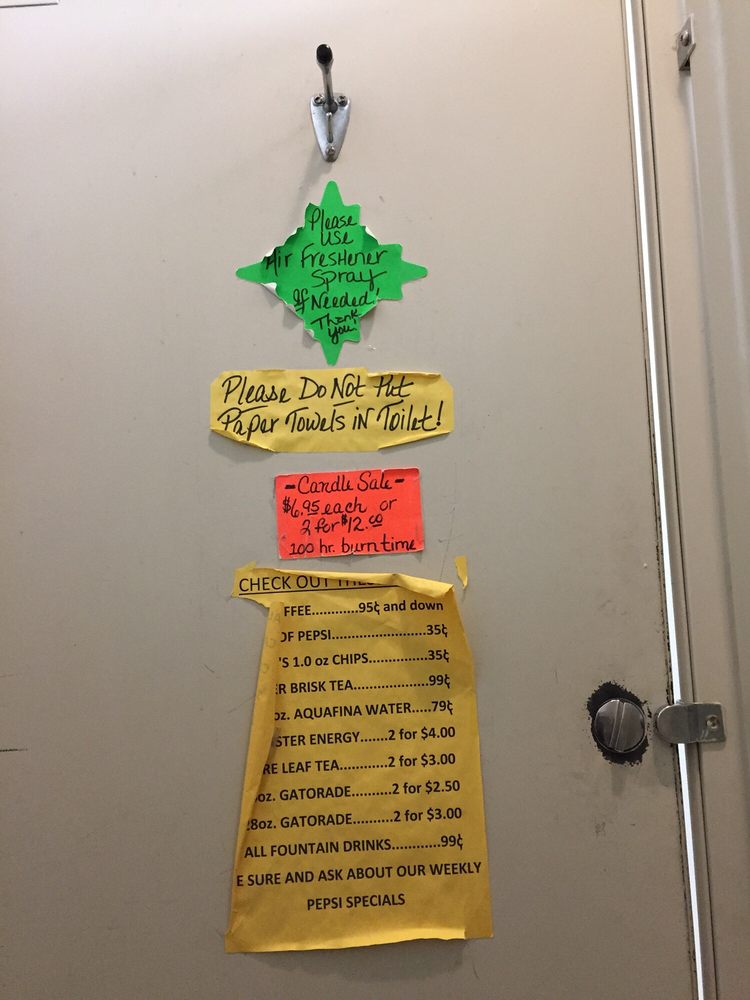 Please
Use
Air Freshener
Spray
If Needed!
Thank
you!
Please Do Not Put
Paper Towels in Toilet!
-Candle Sale-
$6.95 each or
2 for $12.00
100 hr. burn time
CHECK OUT
FFEE............95¢ and down
OF PEPSI.........................35¢
'S 1.0 oz CHIPS...............35¢
R BRISK TEA...................99¢
oz. AQUAFINA WATER.....79¢
STER ENERGY.......2 for $4.00
RE LEAF TEA............2 for $3.00
oz. GATORADE..........2 for $2.50
28oz. GATORADE..........2 for $3.00
ALL FOUNTAIN DRINKS............99¢
E SURE AND ASK ABOUT OUR WEEKLY
PEPSI SPECIALS